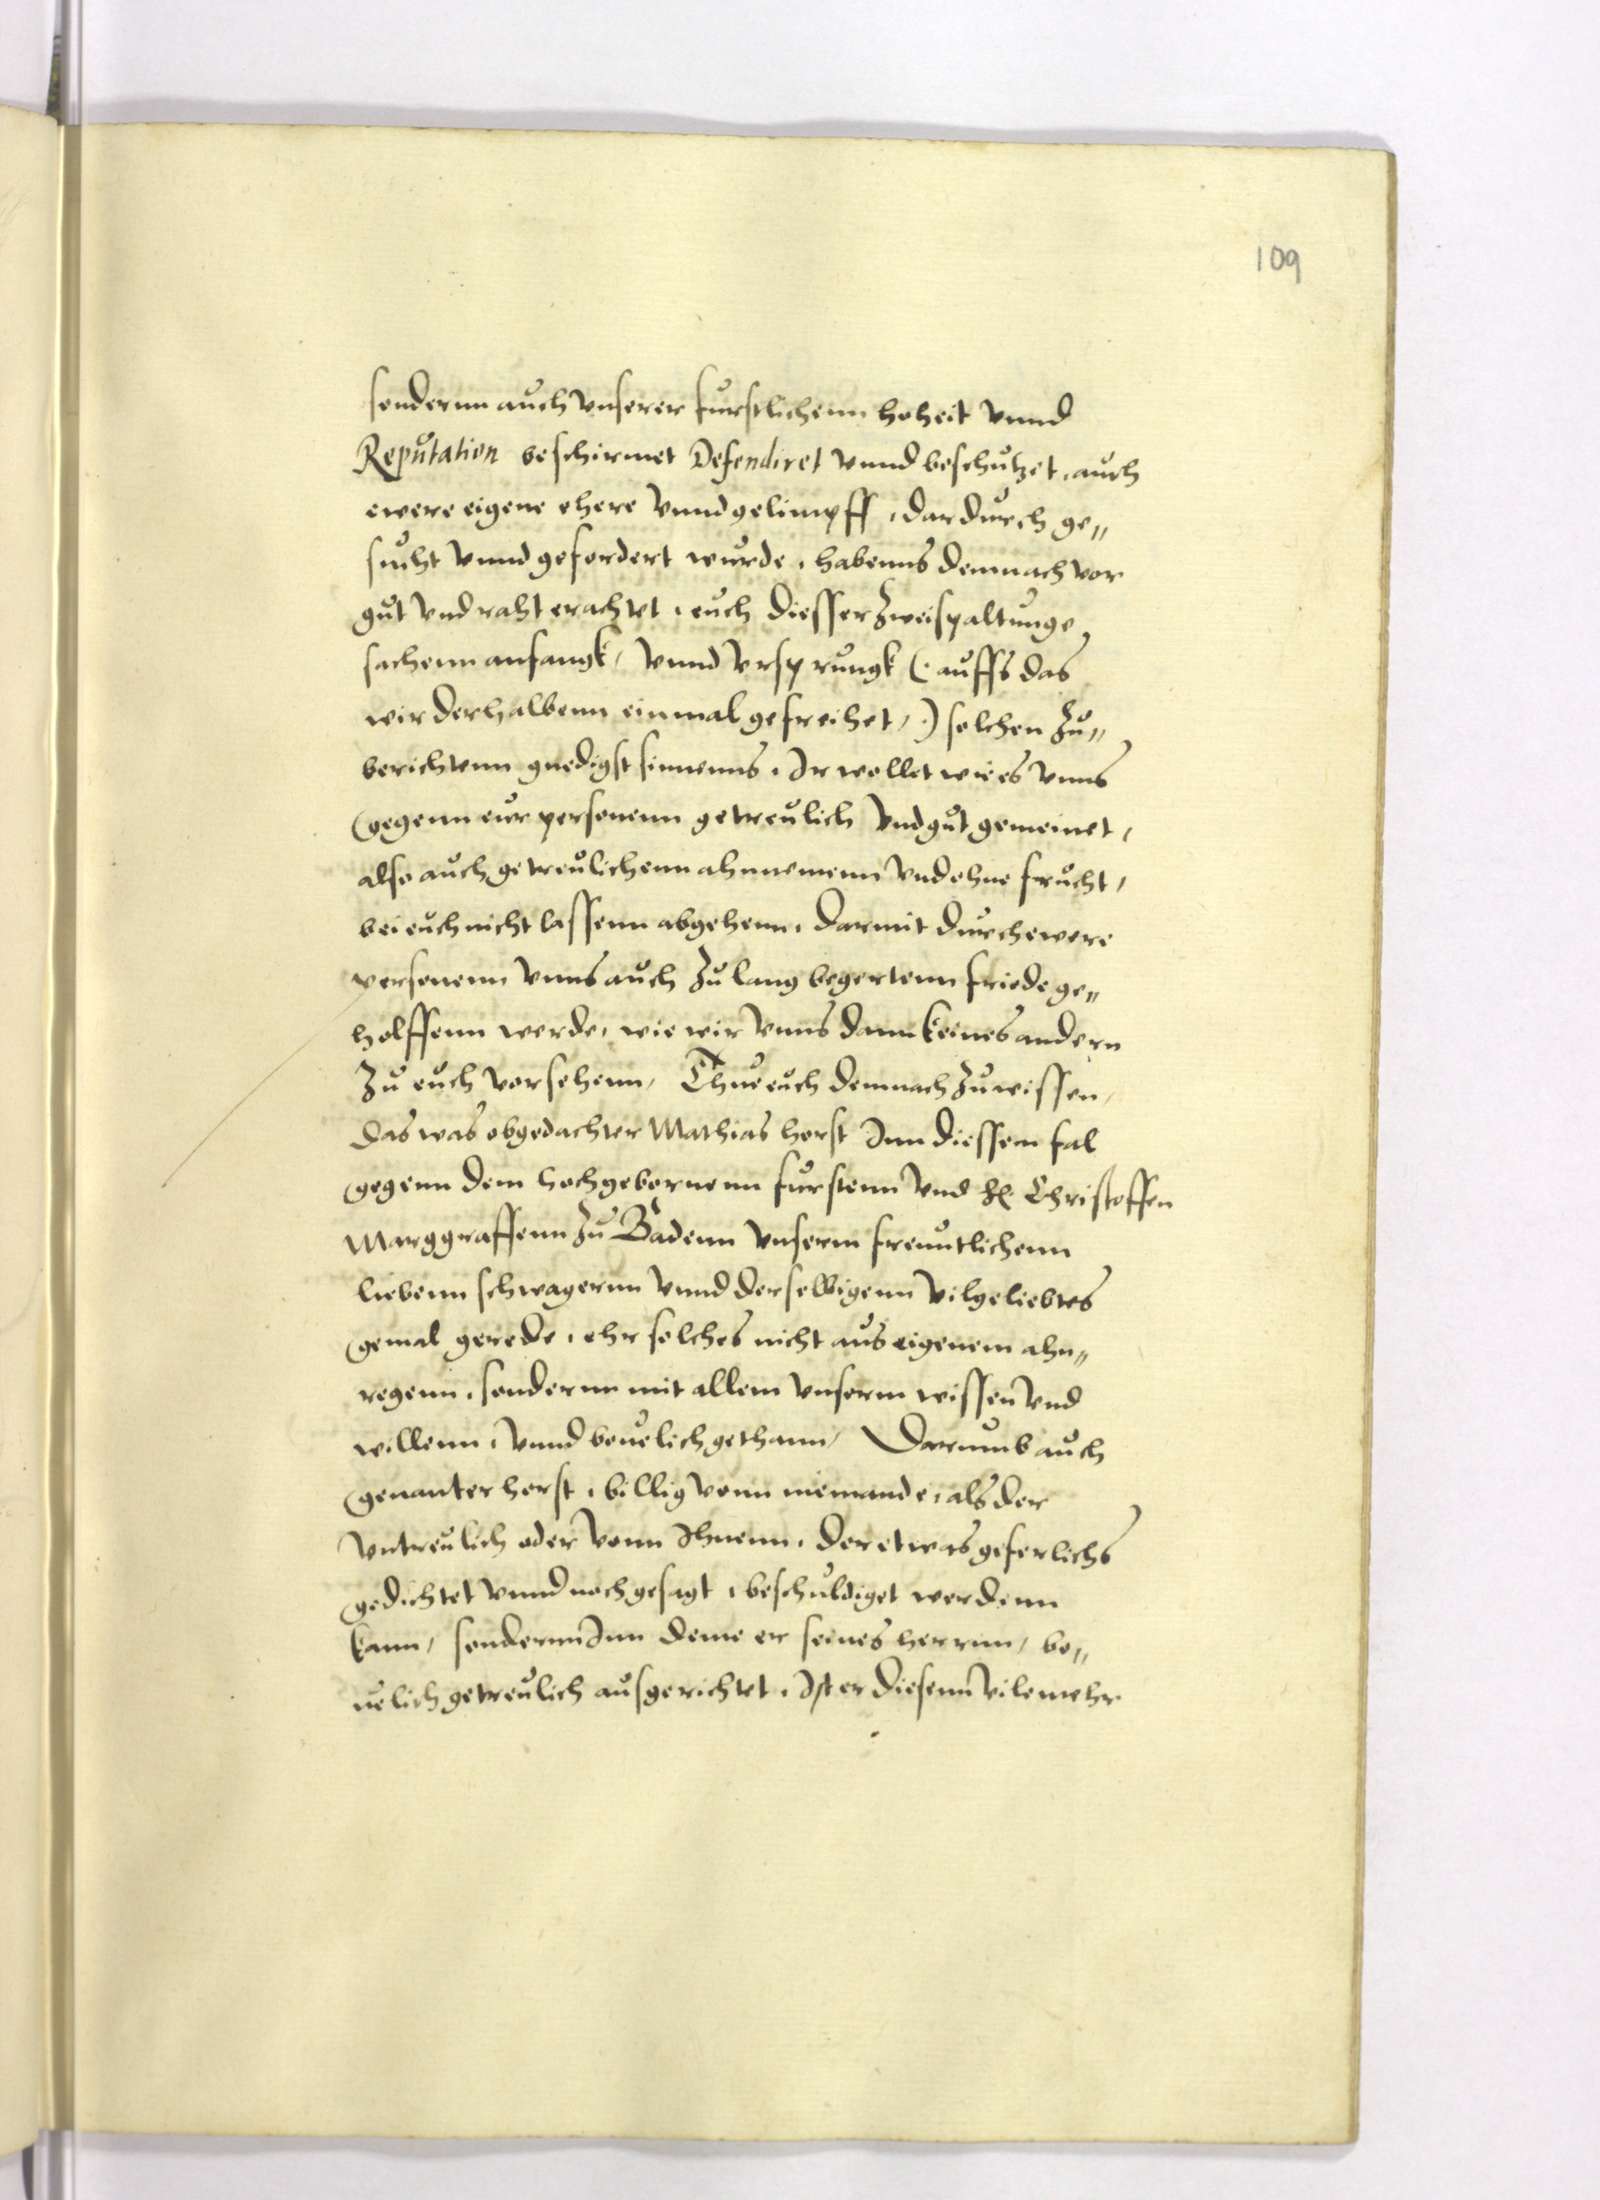 109
sondernn auch vnserer furstlichenn hoheit vnnd
Reputation beschirmet Defendiret vnnd beschutzet, auch
ewere eigene ehere vnnd gelimpff, dardurch ge=
sucht vnnd gefordert wurde, habenns demnach vor
gut vnd raht erachtet, euch diesser Zweispaltunge
sachenn anfangk, vnnd vrsprungk (: auffs das
wir derhalbenn einmal gefreihet, :) solchen zu=
berichtenn gnedigst sinnenns, Ir wollet wie es vnns
gegenn eur personenn getreulich vnd gut gemeinet,
also auch getreulichenn ahnnemenn vnd ohne frucht,
bei euch nicht lassenn abgehenn, darmit durch ewere
personenn vnns auch zu lang begertenn friede ge=
holffenn werde, wie wir vnns dann keines andern
zu euch vorsehenn, Thue euch demnach zuwissen,
das was obgedachter Mathias horst Inn diessem fal
gegenn dem hochgebornenn furstenn vnd h. Christoffen
Marggraffenn zu Badenn vnserm freuntlichenn
liebenn schwagernn vnnd derselbigenn vilgeliebtes
gemal gerede, ehr solches nicht aus eigenem ahn=
regenn, sondernn mit allem vnserm wissen vnd
willenn, vnnd beuelich gethann, Darumb auch
genanter horst, billig vonn niemande, als der
vntreulich oder vonn Ihnenn, der etwas geferlichs
gedichtet vnnd nachgesagt, beschuldiget werdenn
kann, sondernn Inn deme er seines herrnn, be=
uelich getreulich ausgerichtet, Ist er diesenn vilemehr